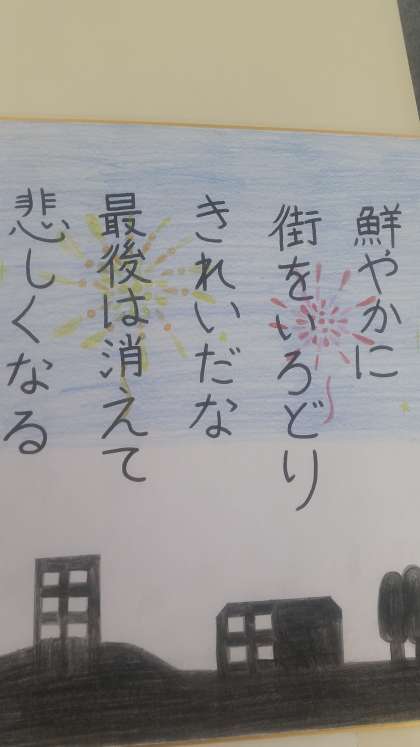 鮮やかに
街をいろどり
きれいだな
最後は消えて
悲しくなる